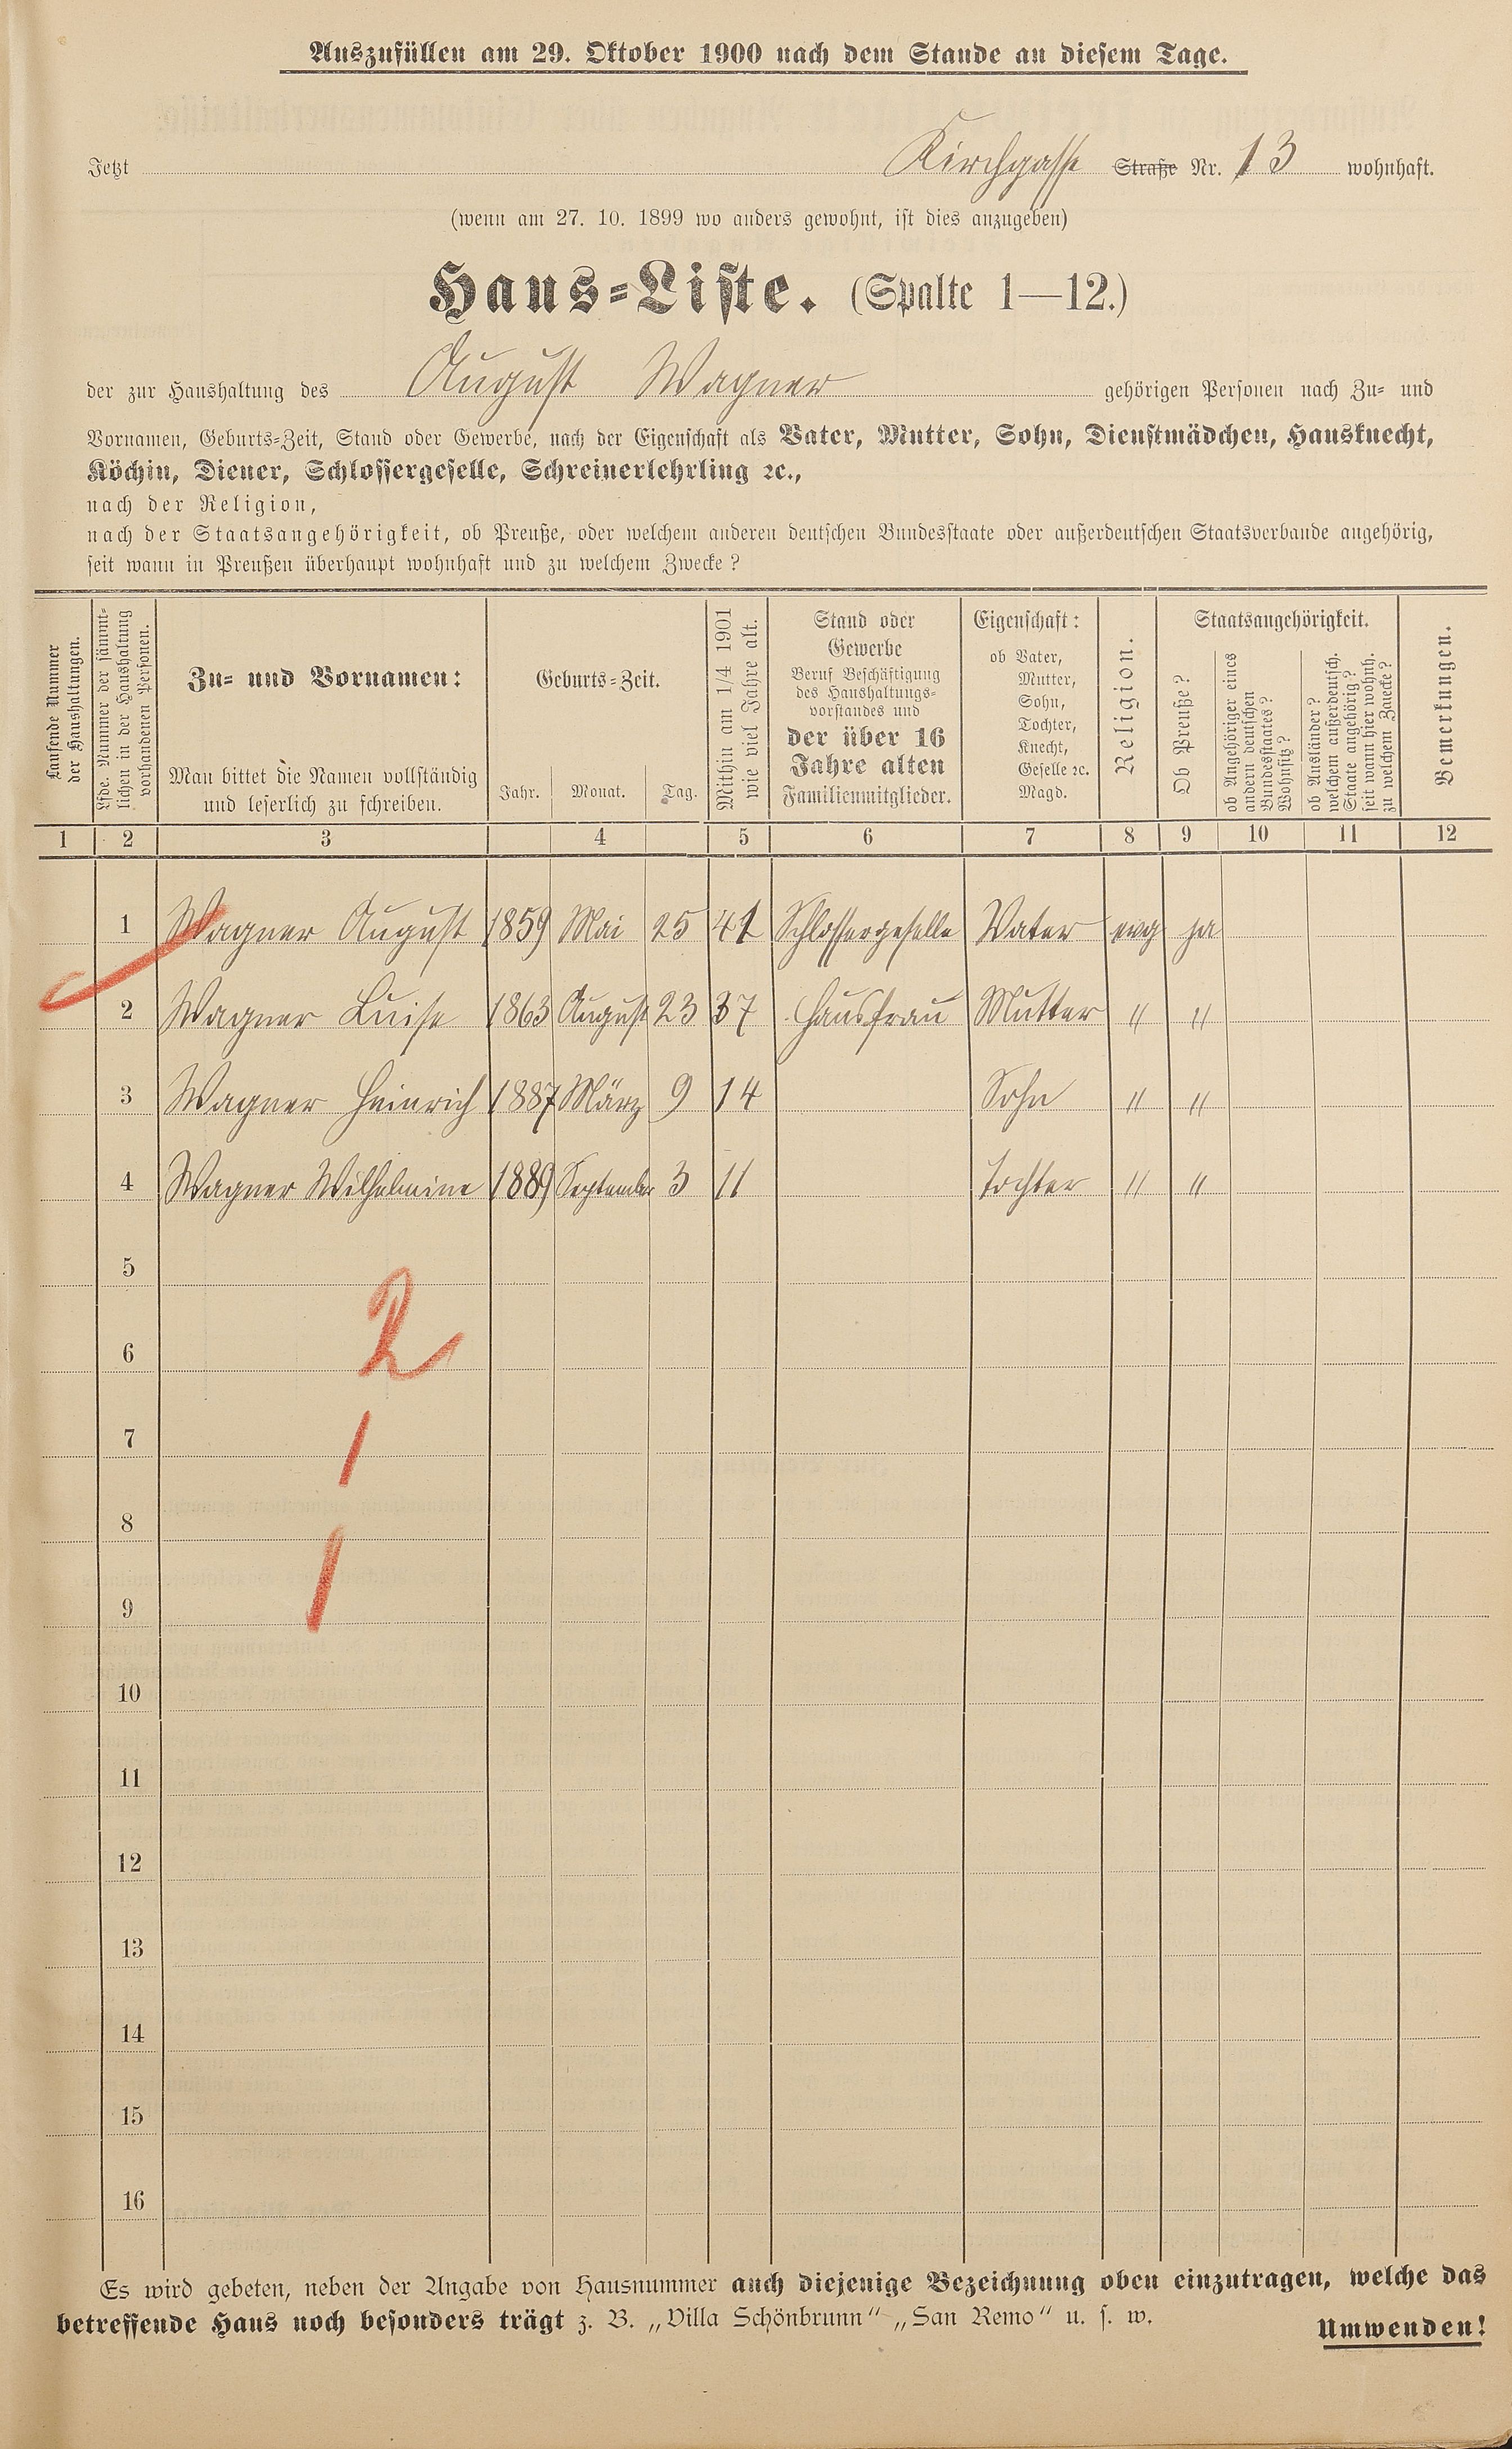 Auszufüllen am 29. Oktober 1900 nach dem Stande an diesem Tage.
Jetzt Kirchgasse Straße Nr. 13 wohnhaft.
(wenn am 27. 10. 1899 wo anders gewohnt, ist dies anzugeben)
Haus-Liste. (Spalte 1—12.)
der zur Haushaltung des August Wagner gehörigen Personen nach Zu- und
Vornamen, Geburts-Zeit, Stand oder Gewerbe, nach der Eigenschaft als Vater, Mutter, Sohn, Dienstmädchen, Hausknecht,
Köchin, Diener, Schlossergeselle, Schreinerlehrling ꝛc.,
nach der Religion,
nach der Staatsangehörigkeit, ob Preuße, oder welchem anderen deutschen Bundesstaate oder außerdeutschen Staatsverbande angehörig,
seit wann in Preußen überhaupt wohnhaft und zu welchem Zwecke?
Laufende Nummer
der Haushaltungen.
Lfde. Nummer der sämmt-
lichen in der Haushaltung
vorhandenen Personen.
Zu- und Vornamen:
Man bittet die Namen vollständig
und leserlich zu schreiben.
Geburts-Zeit.
Jahr. Monat. Tag.
Mithin am 1/4 1901
wie viel Jahre alt.
Stand oder
Gewerbe
Beruf Beschäftigung
des Haushaltungs-
vorstandes und
der über 16
Jahre alten
Familienmitglieder.
Eigenschaft:
ob Vater,
Mutter,
Sohn,
Tochter,
Knecht,
Geselle ꝛc.
Magd.
Religion.
Staatsangehörigkeit.
Ob Preuße?
ob Angehöriger eines
andern deutschen
Bundesstaates?
Wohnsitz?
ob Ausländer?
welchem außerdeutsch.
Staate angehörig?
seit wann hier wohnh.
zu welchem Zwecke?
Bemerkungen.
1 2 3 4 5 6 7 8 9 10 11 12
1 Wagner August 1859 Mai 25 41 Schlossergeselle Vater evg ja
2 Wagner Luise 1863 August 23 37 Hausfrau Mutter " "
3 Wagner Heinrich 1887 März 9 14 Sohn " "
4 Wagner Wilhelmine 1889 September 3 11 Tochter " "
5
2
6
7
1
8
1
9
10
11
12
13
14
15
16
Es wird gebeten, neben der Angabe von Hausnummer auch diejenige Bezeichnung oben einzutragen, welche das
betreffende Haus noch besonders trägt z. B. „Villa Schönbrunn" „San Remo" u. s. w.
Umwenden!